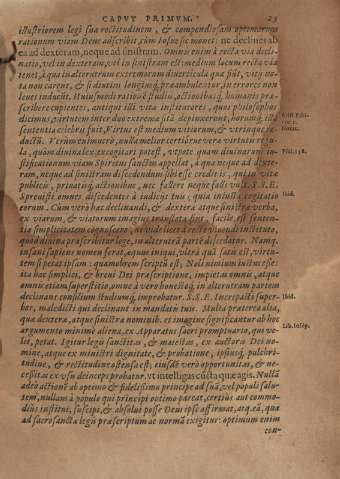 CAPVT PRIMVM. 23
illustriorem legi sua rectitudinem, & compendiosam optimorum
rationum viam Deus adscribit, cùm Iosue sic monet: ne declines ab
ea ad dexteram, neque ad sinistram. Omnis enim à recta via decli-
natio, vel in dexteram, vel in sinistram est: medium locum recta via
tenet, à qua in alterutrum extremorum diuerticula quæ sūt, vitij no-
ta non carent, & si diutius longiusq; præambuletur, in errores non
leues inducūt. Huiusmodi rationē studijs, actionibusq; humanis præ-
scribere cupientes, antiqui illi vitæ institutores, quos philosophos
dicimus, virtutem inter duo extrema sitā depinxerunt, horumq; illa
sententia celebris fuit, Virtus est medium vitiorum, & vtrinque re-
ductū. Verum enimuero, nulla melior certiórue vera virtutis regu-
la, quàm diuina lex, excogitari potest, vtpote quam diuinarum iu-
stificationum viam Spiritus sanctus appellat, à qua neque ad dexte-
ram, neque ad sinistram discedendum sibi esse credit is, qui in vitæ
publicæ, priuatæq; actionibus, nec fallere neque falli vult. S.S.E.
Spreuisti omnes discedentes à iudicijs tuis; quia iniusta cogitatio
eorum. Cùm verò hæc declinandi, & dextera atque sinistræ verba,
ex viarum, & viatorum imagine translata sint, facile est senten-
tiæ simplicitatem cognoscere, ne videlicet à recte viuendi instituto,
quod diuina præscribit lege, in alterutrā parte discedatur. Namq;
insani sapiens nomen ferat, æquus iniqui, vltrà quā satis est, virtu-
tem si petat ipsam: quamobrem scriptū est, Noli nimium iustus esse:
ita hoc simplici, & breui Dei præscriptione, impietas omnis, atque
omnis etiam superstitio, omne à vero bonoq; in alterutram partem
declinans consilium studiumq; improbatur. S.S.E. Increpasti super-
bos, maledicti qui declinant in mandatis tuis. Multa præterea alia,
quæ dextera, atque sinistra nominib. et imagine significantur ab hoc
argumento minimè aliena, ex Apparatus sacri promptuario, qui ve-
let, petat. Igitur legis sanctitas, & maiestas, ex auctoris Dei no-
mine, atque ex ministri dignitate, & probatione, ipsiusq; pulcri-
tudine, & rectitudine ostensa est; eiusdē verò opportunitas, & ne-
cessitas ex vsu deinceps probatur. vt intelligas cūcta quæ agis. Nullā
adeò actionē ab optimo & fidelissimo principe ad suā, vel populi salu-
tem, nullam à populo qui principi optimo pareat, certius aut commo-
dius institui, suscipi, & absolui posse Deus ipse affirmat, atq. eā, quæ
ad sacrosanctæ legis præscriptum ac normā exigitur: optimum enim
con-
Psal. 118.
Ibid.
Ibid.
Lib. Ioseph.